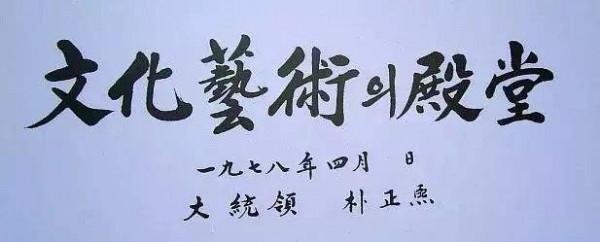 文化藝術의殿堂
一九七八年四月 日
大統領 朴正熙